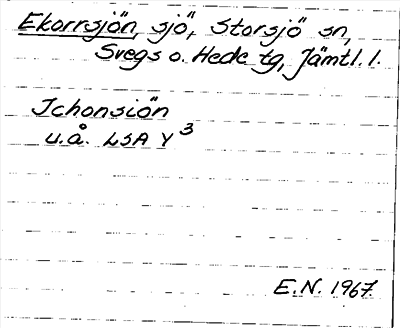 Ekorrsjön, sjö, Storsjö sn,
Svegs o. Hede tg, Jämtl. l.
Ichonsiön
u.å. LSA Y 3
E.N. 1967